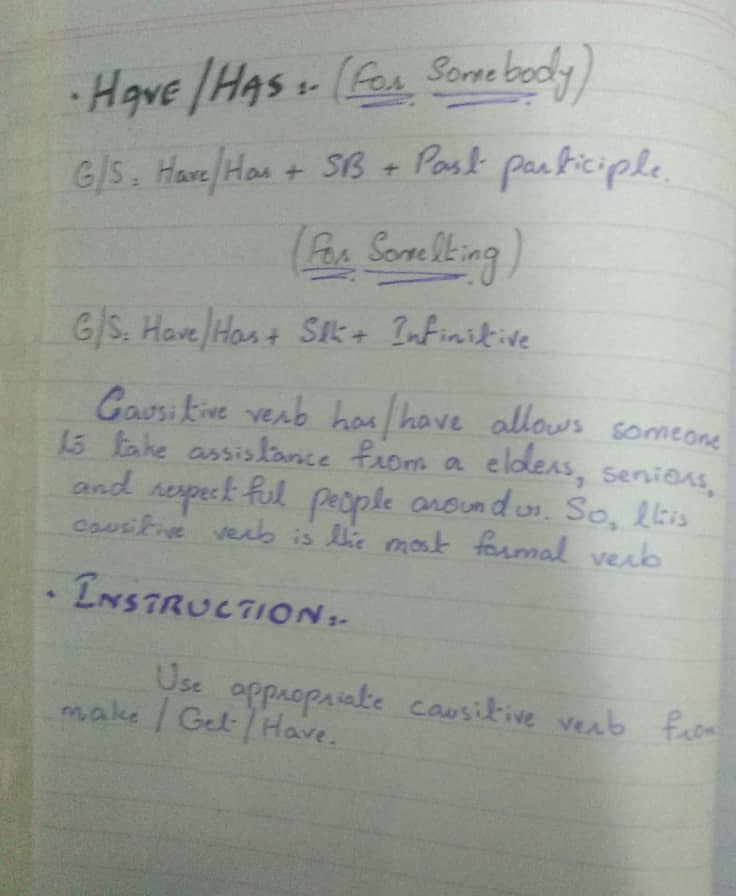 • Have/Has :- (For Somebody)
G/S: Have/Has + SB + Past participle.
(For Something)
G/S: Have/Has + Sth + Infinitive
Causitive verb has/have allows someone
to take assistance from a elders, seniors,
and respectful people around us. So, this
causitive verb is the most formal verb
• INSTRUCTION:-
Use appropriate causitive verb from
make / Get / Have.